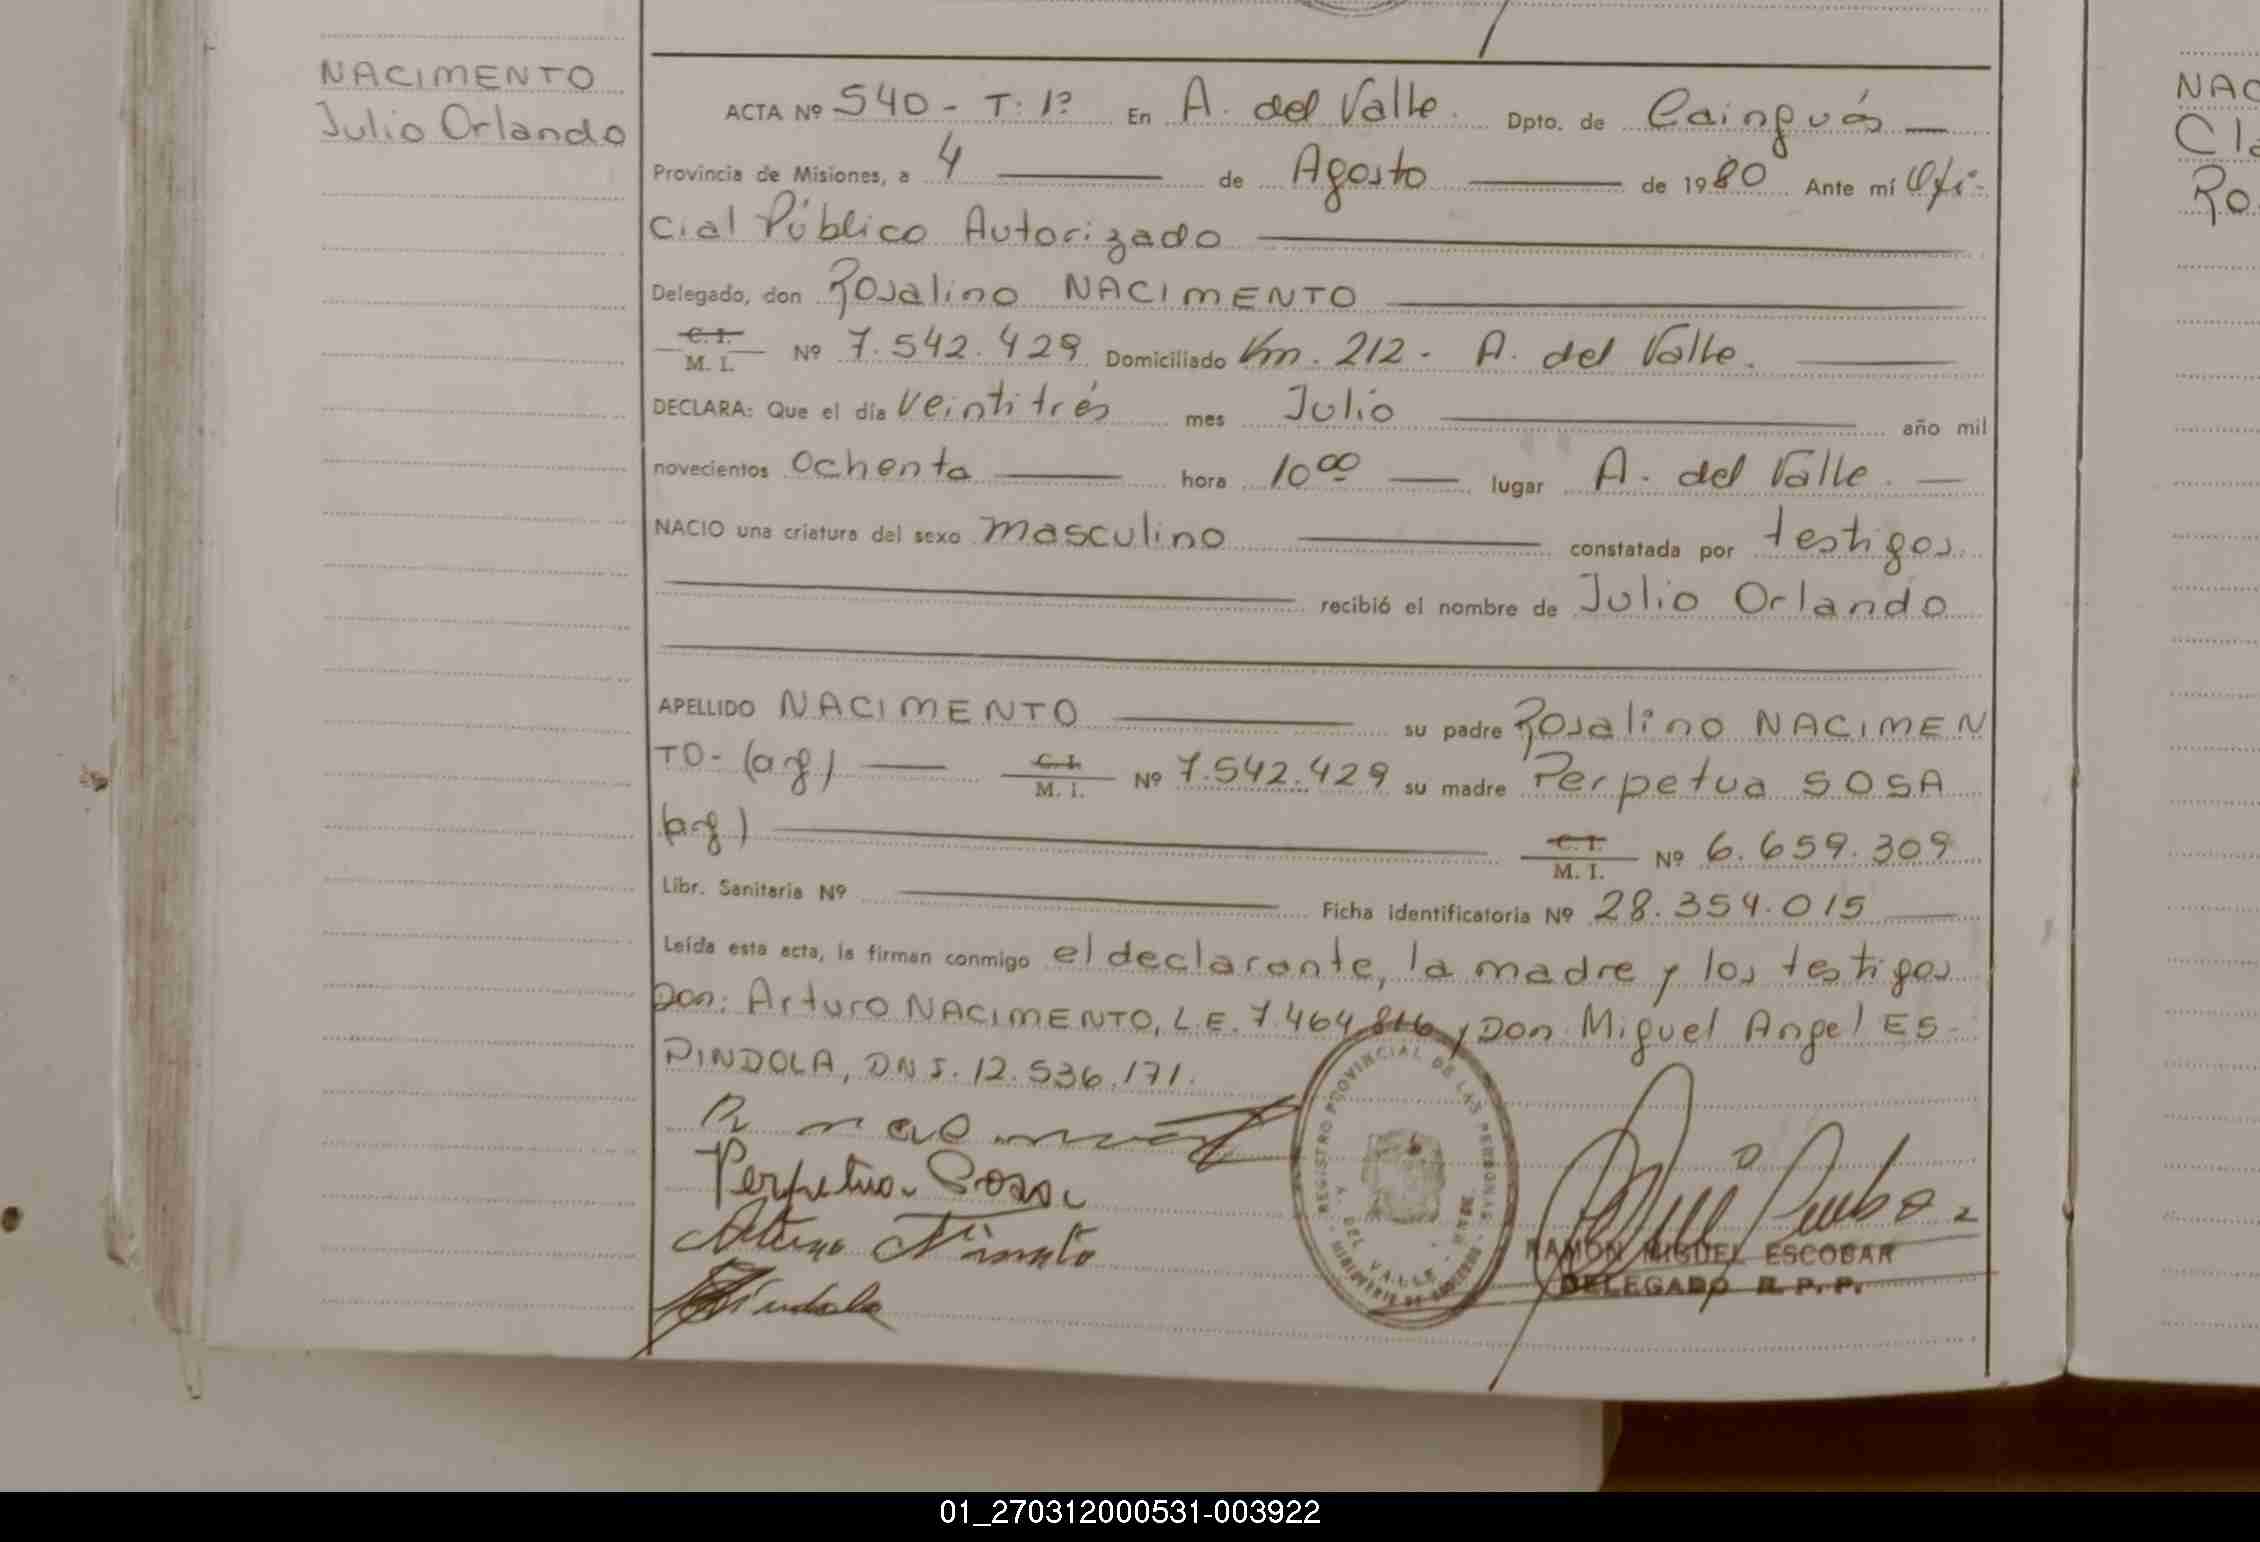 NACIMENTO
Julio Orlando
ACTA Nº 540 - T: 1º En A. del Valle. Dpto. de Cainguás
Provincia de Misiones, a 4 de Agosto de 1980 Ante mí Ofi-
cial Público Autorizado
Delegado, don Rosalino NACIMENTO
C. I.
M. I. Nº 7.542.429 Domiciliado Km. 212 - A. del Valle.
DECLARA: Que el día veintitrés mes Julio año mil
novecientos Ochenta hora 10 00 lugar A. del Valle.
NACIO una criatura del sexo masculino constatada por testigos.
recibió el nombre de Julio Orlando
APELLIDO NACIMENTO su padre Rosalino NACIMEN
TO - (arg) C. I. M. I. Nº 7.542.429 su madre Perpetua SOSA
(arg) C. I. M. I. Nº 6.659.309
Libr. Sanitaria Nº Ficha identificatoria Nº 28.354.015
Leída esta acta, la firman conmigo el declarante, la madre y los testigos
Don: Arturo NACIMENTO, L.E. 7.464.816 y Don Miguel Angel ES-
PINDOLA, DNI. 12.536.171.
Perpetua Sosa
REGISTRO PROVINCIAL DE LAS PERSONAS
A. DEL VALLE
RAMON MIGUEL ESCOBAR
DELEGADO R. P. P.
NAC
Cla
Ro
01_270312000531-003922